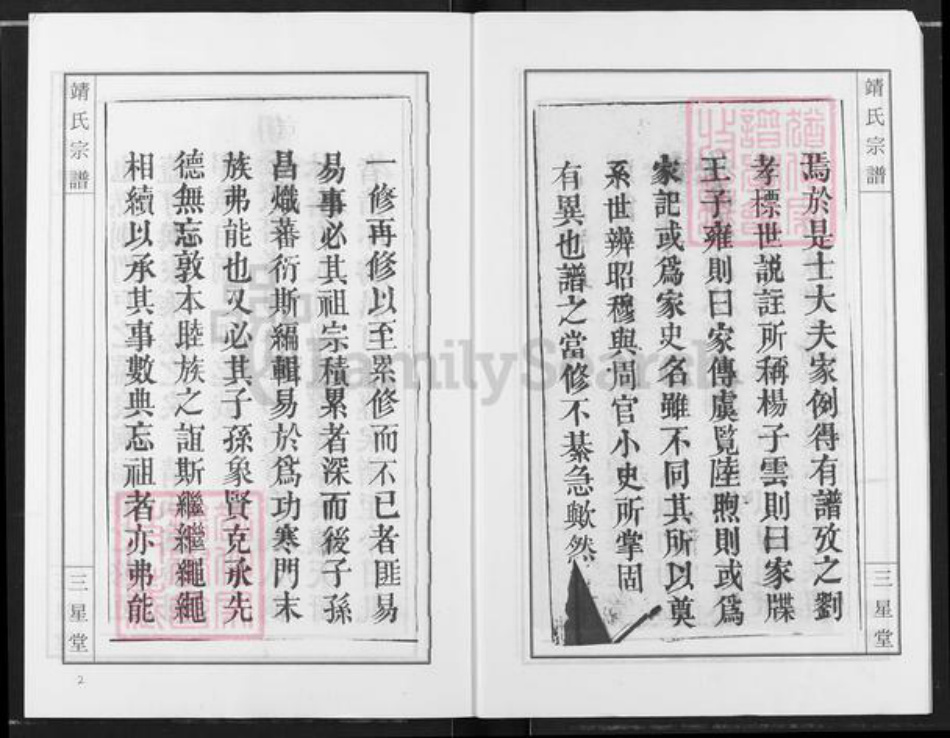 靖氏宗譜
三星堂
焉於是士大夫家例得有譜攷之劉
孝標世説註所稱楊子雲則曰家牒
王子雍則曰家傳虞覽陸煦則或爲
家記或爲家史名雖不同其所以奠
系世辨昭穆與周官小史所掌固
有異也譜之當修不綦急歟然
一修再修以至累修而不已者匪易
易事必其祖宗積累者深而後子孫
昌熾蕃衍斯編輯易於爲功寒門末
族弗能也又必其子孫象賢克承先
德無忘敦本睦族之誼斯繼繼繩繩
相續以承其事數典忘祖者亦弗能
靖氏宗譜
三星堂
2
FamilySearch